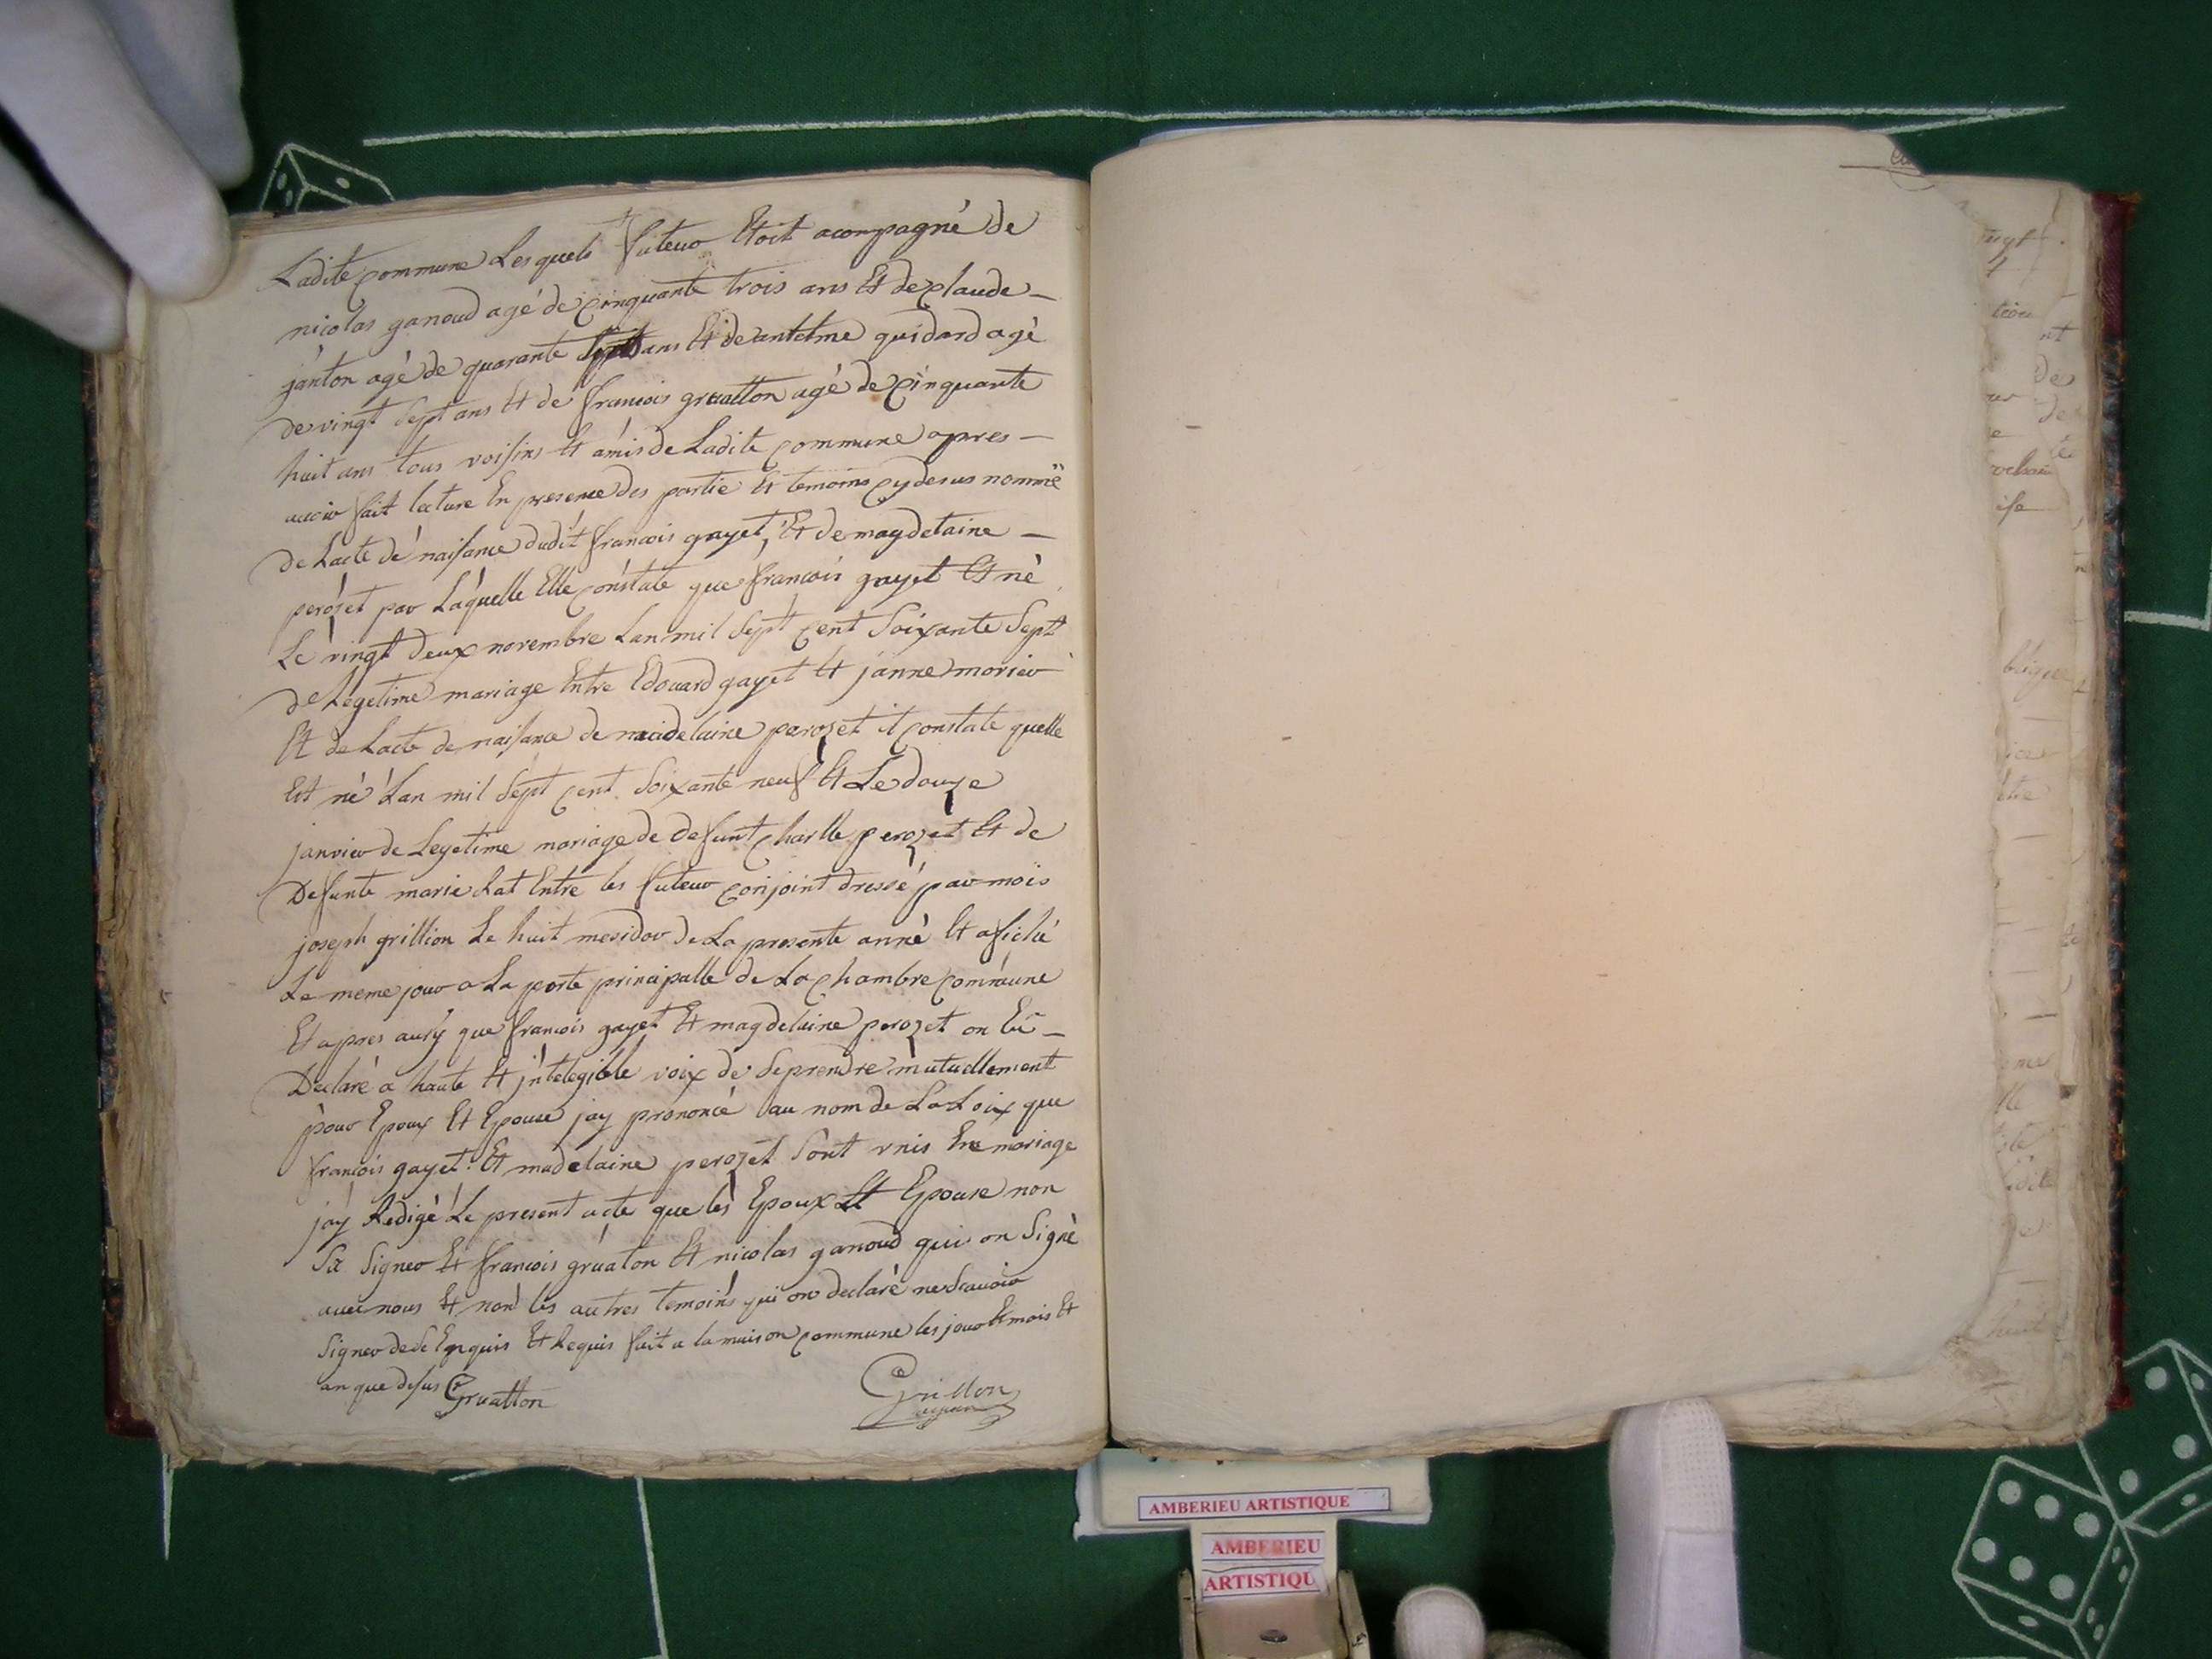 Ladite commune Lesquels futeur Etoit acompagné de
nicolas ganoud agé de cinquante trois ans Et de claude
janton agé de quarante Sept ans Et de antelme guidard agé
de vingt Sept ans Et de francois gruatton agé de cinquante
huit ans tous voisins Et amis de Ladite commune apres
avoir fait lecture En presence des partie Et temoins cy desus nommé
de Lacte de naisance dudit francois gayet, Et de magdelaine
perozet par Laquelle Elle constate que francois gayet Et né
Le vingt deux novembre Lan mil Sept cent Soixante Sept
de Legetime mariage Entre Edouard gayet Et janne morier
Et de Lacte de naisance de maidelaine perozet il constate quelle
Est né Lan mil Sept cent Soixante neuf Et Le douze
janvier de Legetime mariage de defunt charlle perozet Et de
Defunte marie Lat Entre les futeur conjoint dressé par mois
joseph grillion Le huit mesidor de La presente anné Et afiché
Le meme jour a La porte principalle de La chambre commune
Et apres aussy que francois gayet Et magdelaine perozet on Eu
Declaré a haute Et jntelegible voix de Se prendre mutuellement
pour Epoux Et Epouse jay prononcé au nom de La Loix que
francois gayet Et madelaine perozet Sont vnis En mariage
jay Redigé Le present acte que les Epoux Et Epouse non
Sx Signer Et francois gruaton Et nicolas ganoud qui on Signé
avec nous Et non les autres temoins qui on declaré ne Scavoir
Signer de Ce Enquis Et Requis fait a la maison commune les jour Et mois Et
an que desus Gruatton
Grillon
AMBERIEU ARTISTIQUE
AMBERIEU
ARTISTIQU